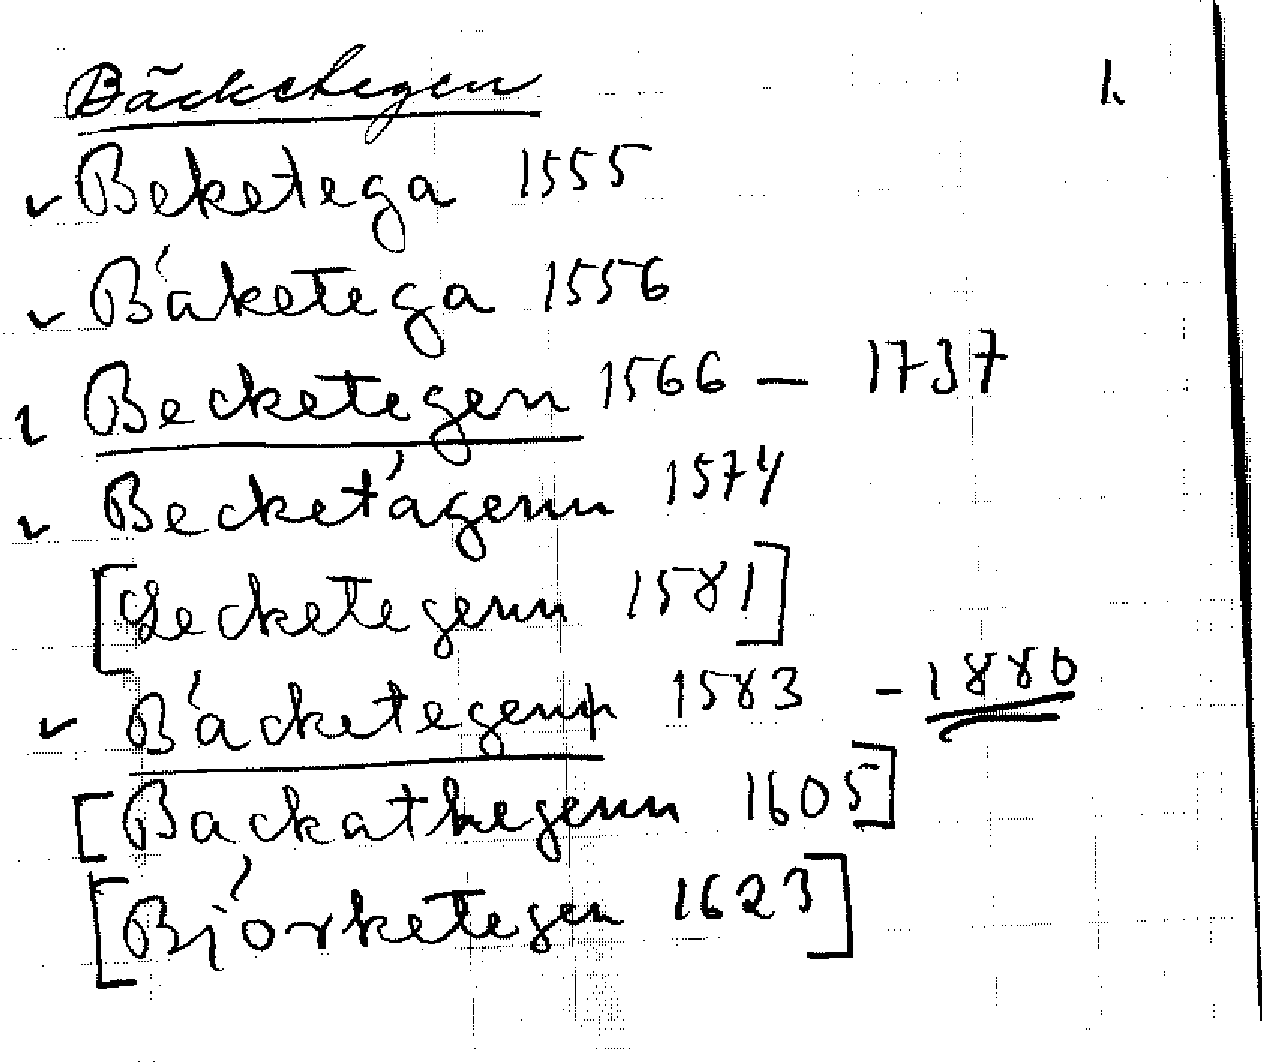 Bäckstegen 1.
Beketega 1555
Báketega 1556
Becketegen 1566 — 1737
Becketágenn 1574
[Lecketegenn 1581]
Bácketegenn 1583 - 1880
[Backathegenn 1605]
[Bjórketegen 1623]